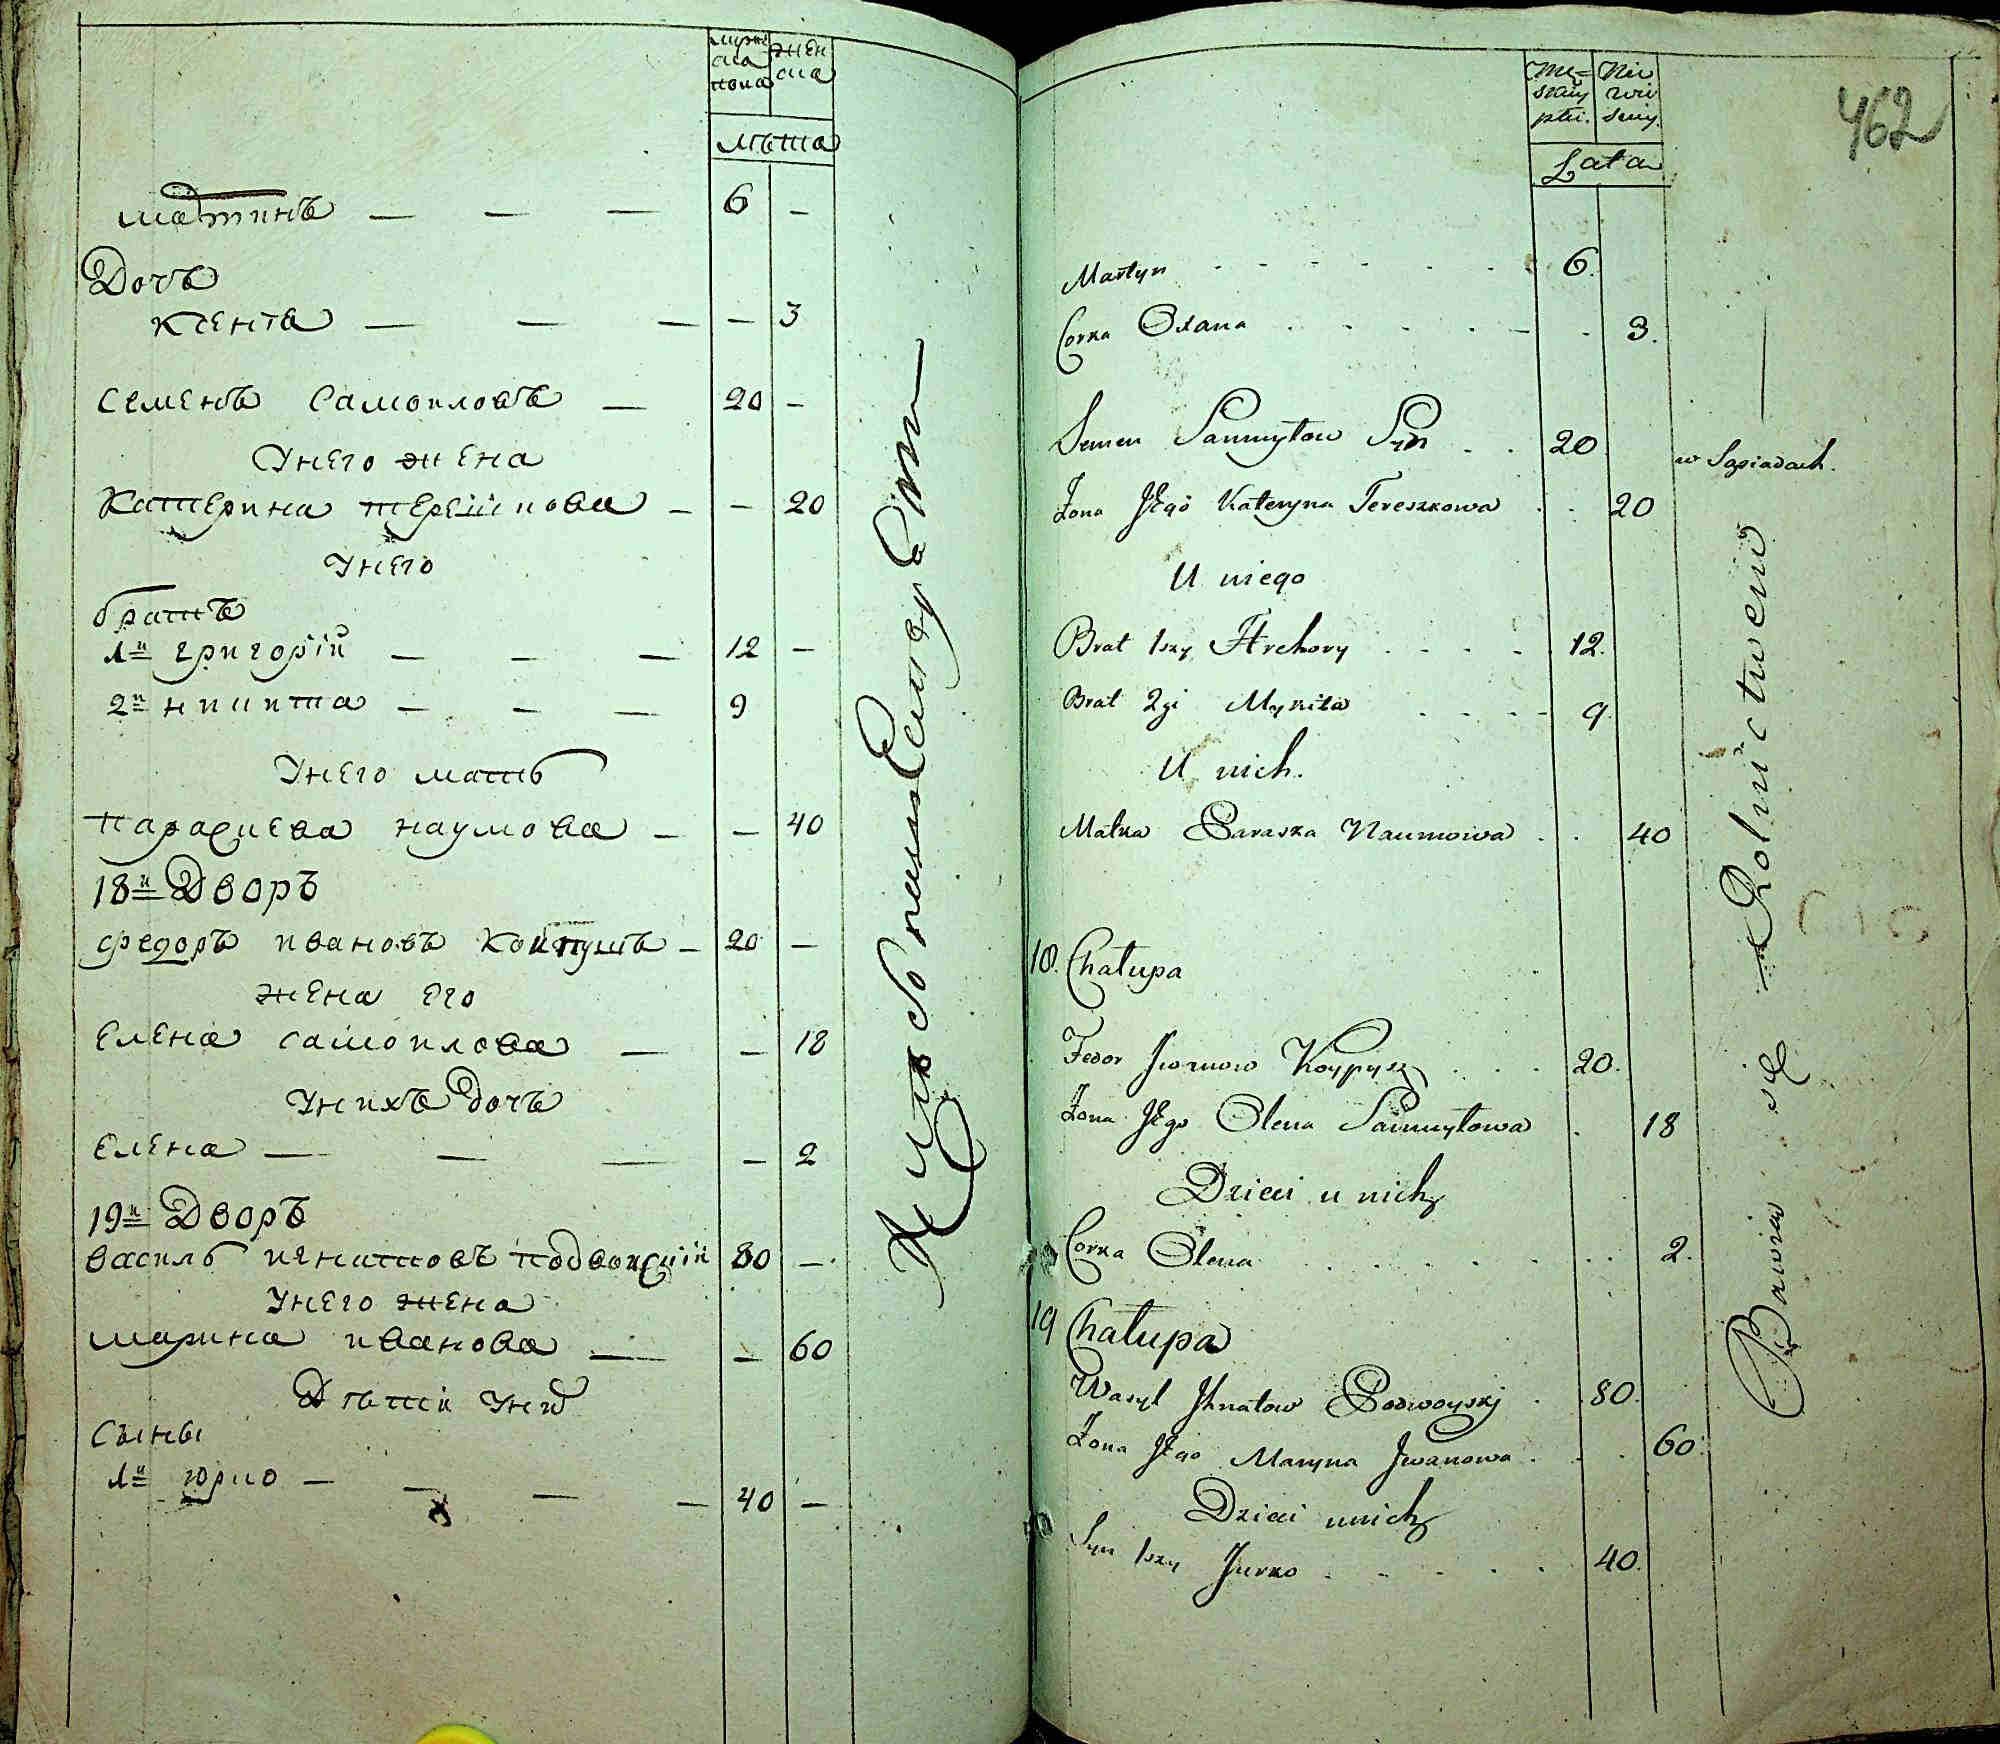 мужеска пола
женска
лѣта
мартинъ — — — 6 —
Дочъ
ксенія — — — — 3
семенъ самоиловъ — 20 —
Унего жена
Катерина терешкова — — 20
Унего
братъ
1й григорій — — — 12 —
2й никита — — — 9
Унего мать
параскева наумова — — 40
18й Дворъ
федоръ ивановъ Койпушъ — 20 —
жена его
елена самоилова — — 18
Унихъ дочъ
елена — — — — 2
19й Дворъ
василь игнатовъ подвойскій 80 —
Унего жена
марина иванова — — 60
Дѣти Унихъ
Сыны
1й юрко — — — — 40 —
Хлѣбопашествуетъ
462
Męskiey płci.
Niewieściey.
Lata
Martyn 6.
Corka Oxana 3.
Semen Samuyłow Syn 20
w Sąsiadach.
Żona Jego Kateryna Tereszkowa 20
U niego
Brat 1szy Hrehory 12.
Brat 2gi Mykita 9
U nich.
Matka Paraska Naumowa 40
18. Chałupa
Fedor Iwanow Koypysz 20.
Żona Jego Olena Samuyłowa 18
Dzieci u nich
Corka Olena 2.
19 Chałupa
Wasyl Ihnatow Podwoyski 80.
Żona Jego Maryna Iwanowa 60
Dzieci u nich
Syn 1szy Jurko 40.
Bawią się Rolnictwem